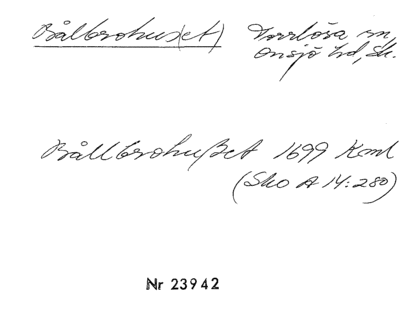 Bålbrohus(et) Torrlösa sn,
Onsjö hd, Sk.
Bållbrohusset 1699 Koml
(Sko A 14:280)
Nr 23942